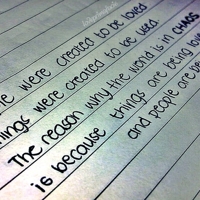 were created to be loved
things were created to be used.
The reason why the world is in CHAOS
is because things are being love
and people are be